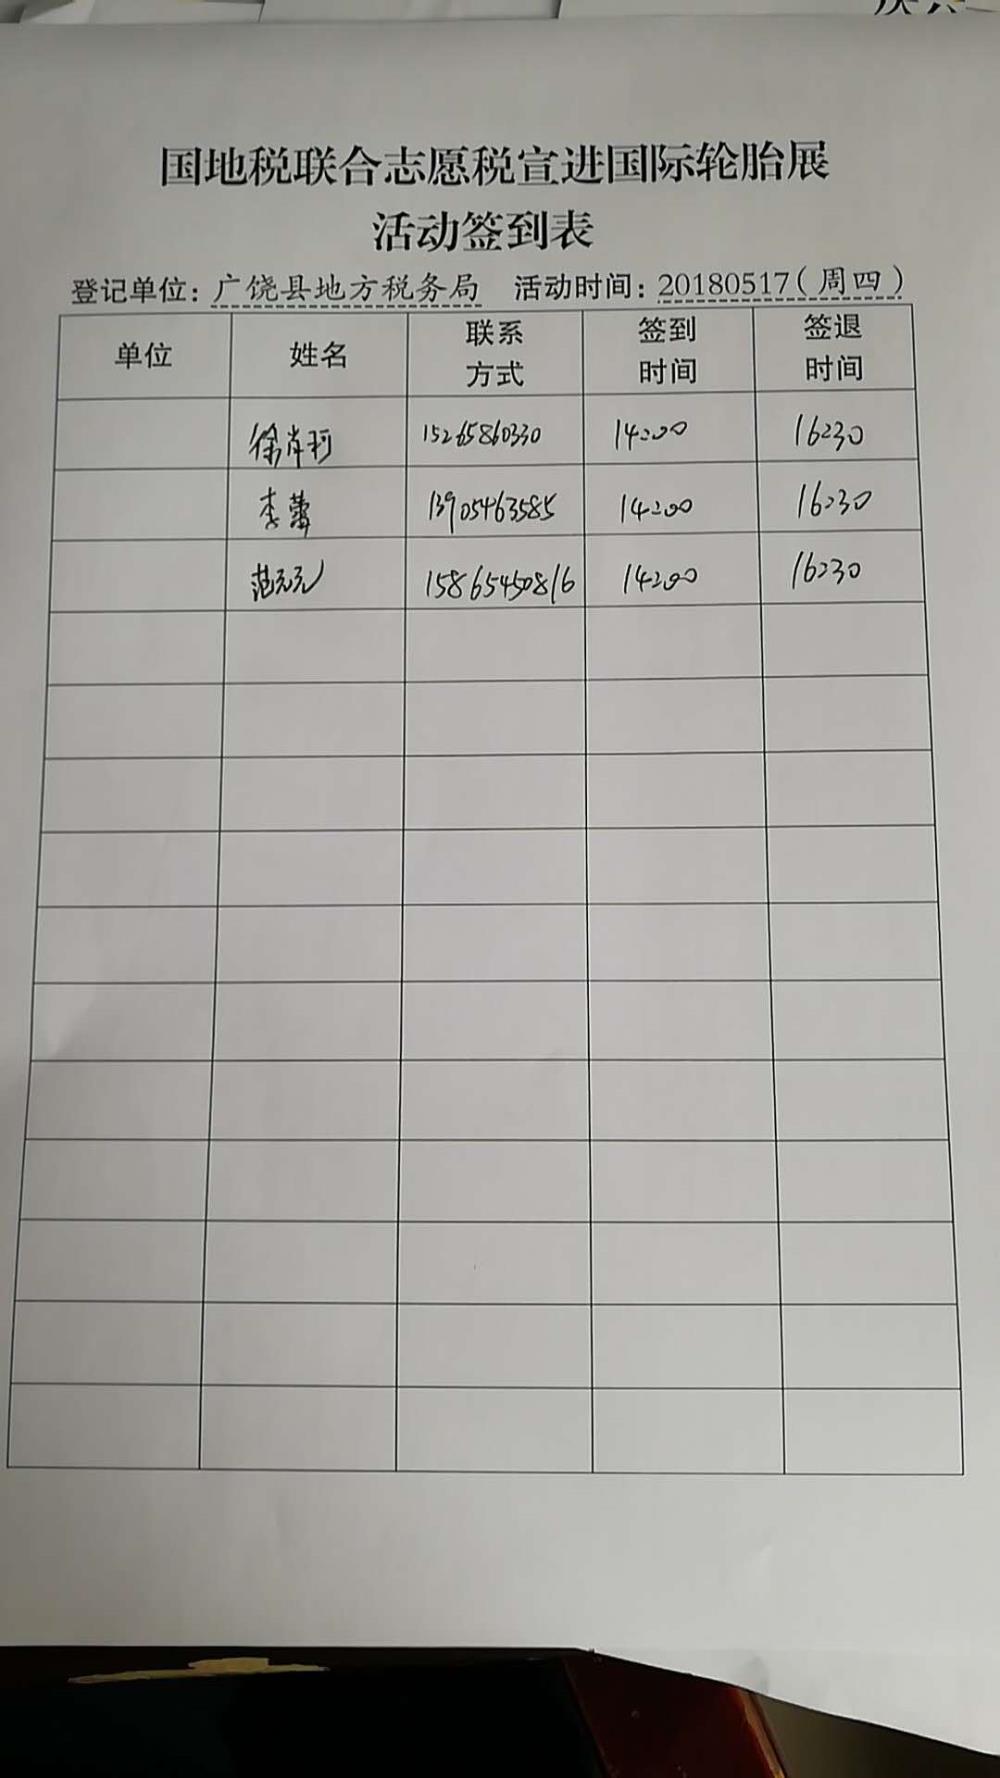 国地税联合志愿税宣进国际轮胎展
活动签到表
登记单位：广饶县地方税务局 活动时间：20180517（周四）
单位 姓名 联系方式 签到时间 签退时间
徐肖珂 15265860330 14:00 16:30
李蕾 13905463585 14:00 16:30
范元元 15865450816 14:00 16:30